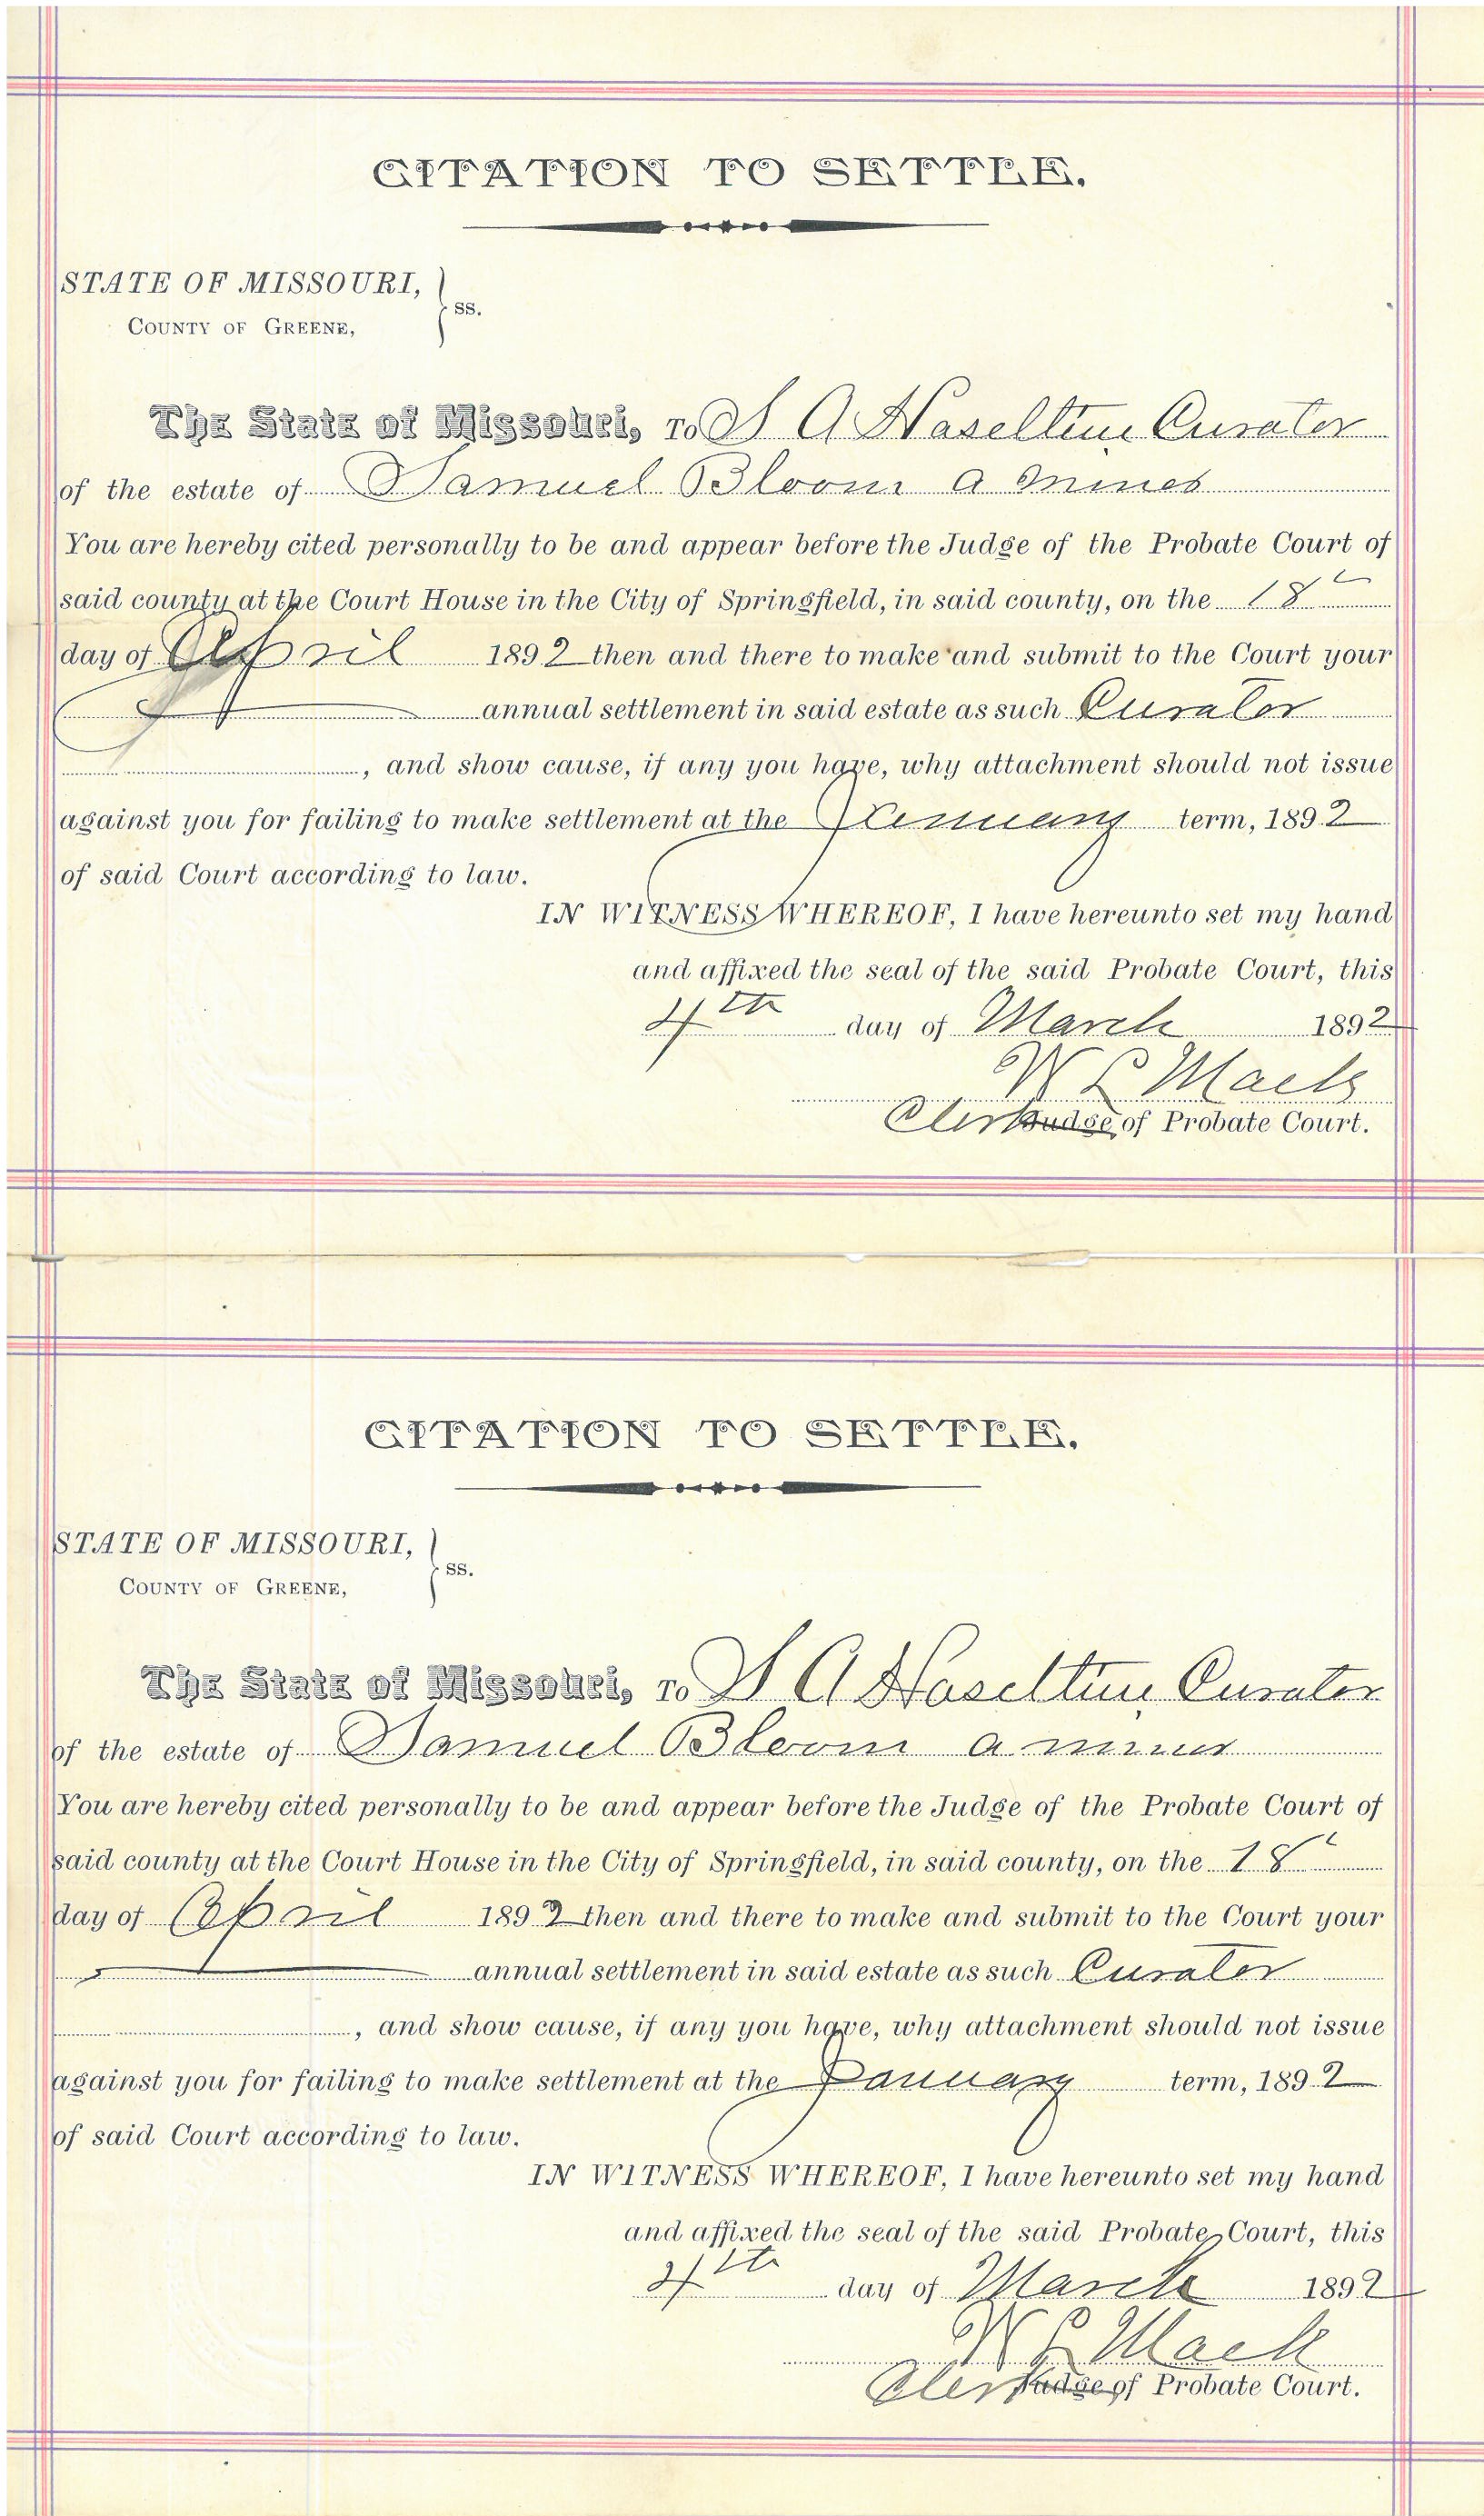 CITATION TO SETTLE.
STATE OF MISSOURI,
COUNTY OF GREENE, } ss.
The State of Missouri, To S A Haseltine Curator
of the estate of Samuel Bloom a minor
You are hereby cited personally to be and appear before the Judge of the Probate Court of
said county at the Court House in the City of Springfield, in said county, on the 18t
day of April 1892 then and there to make and submit to the Court your
annual settlement in said estate as such Curator
, and show cause, if any you have, why attachment should not issue
against you for failing to make settlement at the January term, 1892
of said Court according to law.
IN WITNESS WHEREOF, I have hereunto set my hand
and affixed the seal of the said Probate Court, this
4th day of March 1892
W L Mack
Clerk Judge of Probate Court.
CITATION TO SETTLE.
STATE OF MISSOURI,
COUNTY OF GREENE, } ss.
The State of Missouri, To S A Haseltine Curator
of the estate of Samuel Bloom a minor
You are hereby cited personally to be and appear before the Judge of the Probate Court of
said county at the Court House in the City of Springfield, in said county, on the 18t
day of April 1892 then and there to make and submit to the Court your
annual settlement in said estate as such Curator
, and show cause, if any you have, why attachment should not issue
against you for failing to make settlement at the January term, 1892
of said Court according to law.
IN WITNESS WHEREOF, I have hereunto set my hand
and affixed the seal of the said Probate Court, this
4th day of March 1892
W L Mack
Clerk Judge of Probate Court.